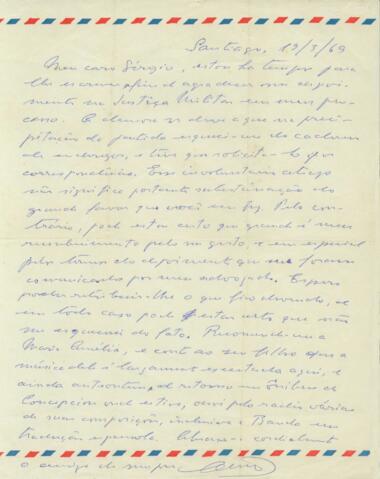 Santiago, 19/5/69
Meu caro Sérgio, estou há tempo para
lhe escrever a fim de agradecer seu depoi-
mento na Justiça Militar em meu pro-
cesso. A demora se deve a que na preci-
pitação da partida esqueci-me do caderno
de endereços, e tive que solicitá-lo por
correspondência. Esse involuntário atraso
não significa portanto subestimação do
grande favor que você me fez. Pelo con-
trário, pode estar certo que grande é meu
reconhecimento pelo seu gesto, e em especial
pelos termos do depoimento, que me foram
comunicados por meu advogado. Espero
poder retribuir-lhe o que fico devendo, e
em todo caso pode estar certo que não
me esquecerei do fato. Recomende-me a
Maria Amélia, e conte ao seu filho que a
música dele é largamente executada aqui, e
ainda anteontem, de retorno no ônibus de
Concepción onde estive, ouvi pelo rádio várias
de suas composições, inclusive a Banda em
tradução espanhola. cordialmente
o amigo de sempre